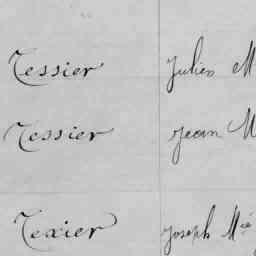 Tessier Julien M
Tessier Jean M
Texier Joseph Mie